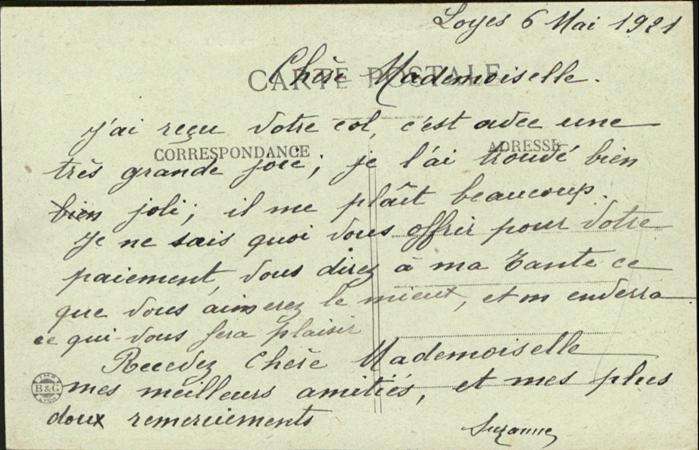 Loyes 6 Mai 1921
CARTE POSTALE
Chère Mademoiselle.
J'ai reçu votre col, c'est avec une
CORRESPONDANCE
ADRESSE
très grande joie; je l'ai trouvé bien
bien joli; il me plaît beaucoup.
Je ne sais quoi vous offrir pour votre
paiement, vous direz à ma Tante ce
que vous aimerez le mieux, et on enverra
ce qui vous fera plaisir
Recevez Chère Mademoiselle
mes meilleurs amitiés, et mes plus
B & G
doux remerciements
Suzanne